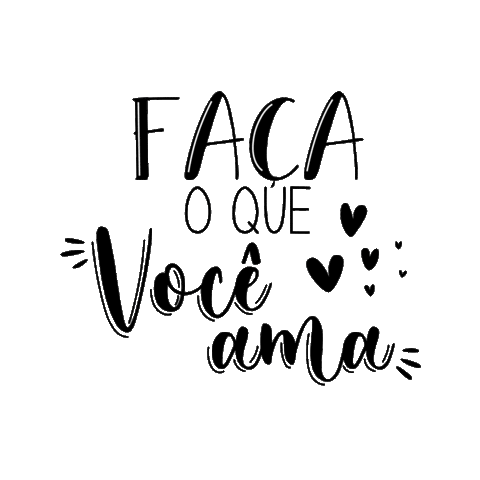 FAÇA
O QUE
Você
ama